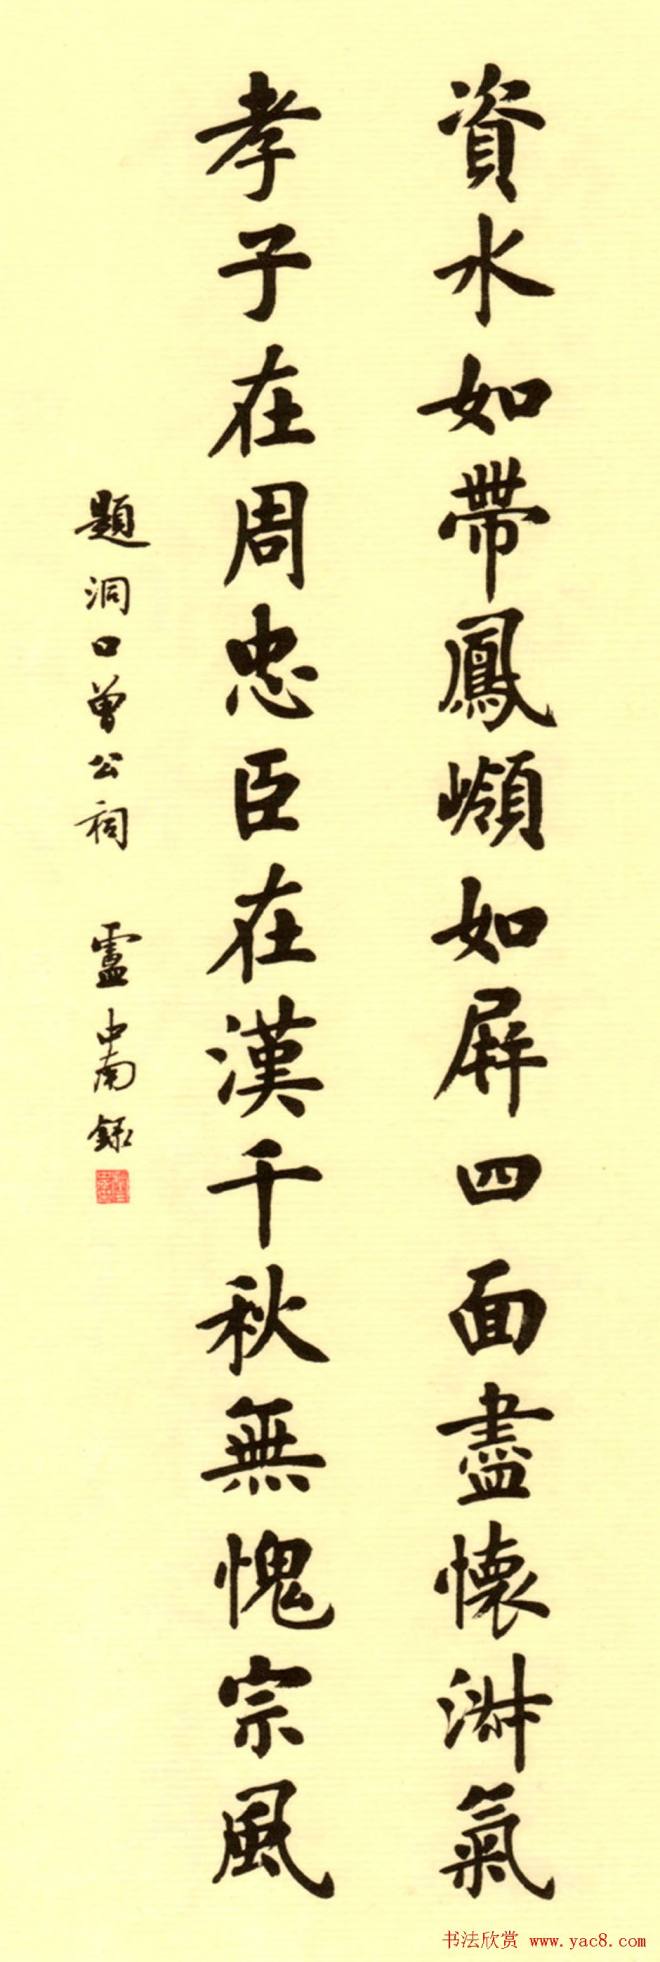 資水如帶鳳嶺如屏四面盡懷淑氣
孝子在周忠臣在漢千秋無愧宗風
題洞口曾公祠 盧中南錄
书法欣赏 www.yac8.com